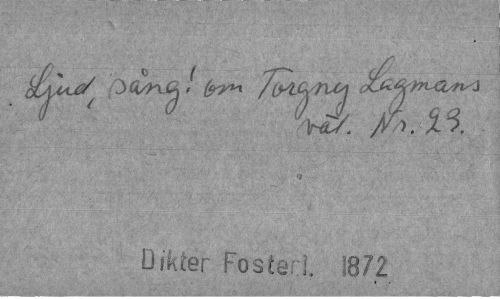 Ljud, sång! om Torgny Lagmans
vät. Nr. 23.
Dikter Fosterl. 1872